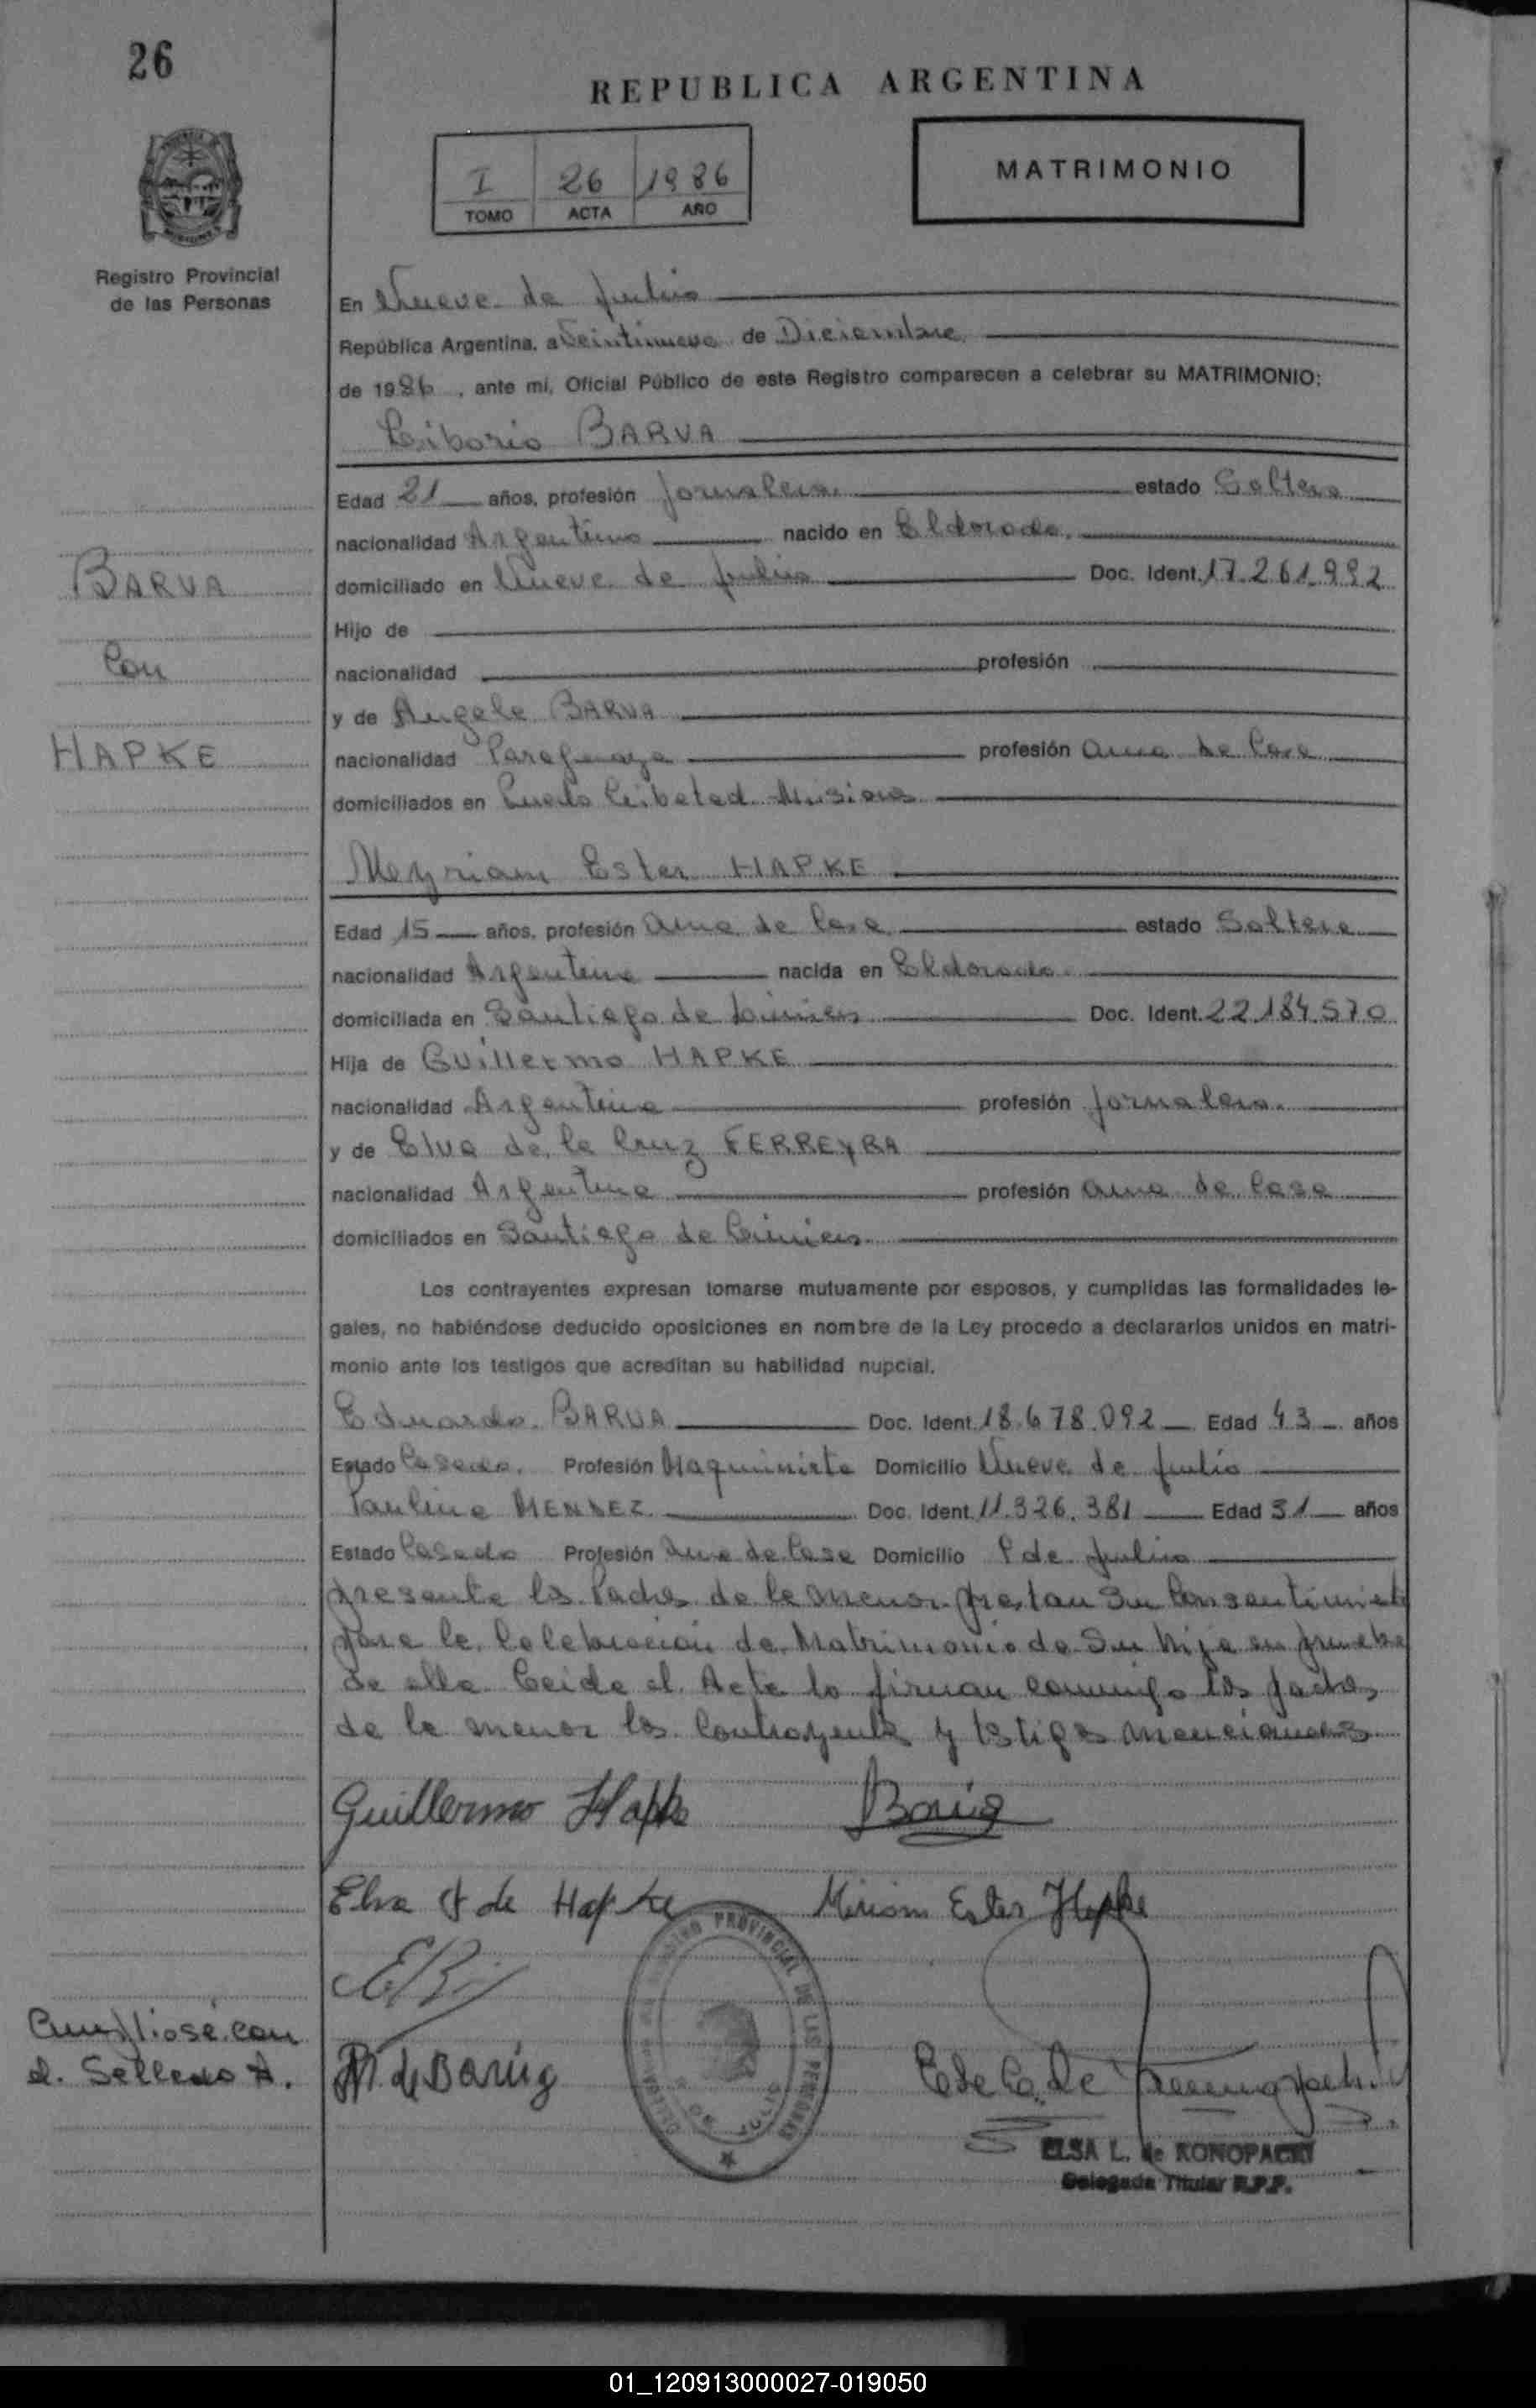 26
REPUBLICA ARGENTINA
I 26 1986
TOMO ACTA AÑO
MATRIMONIO
Registro Provincial
de las Personas
En Nueve de Julio
República Argentina, a Veintinueve de Diciembre
de 1986, ante mí, Oficial Público de este Registro comparecen a celebrar su MATRIMONIO:
Liborio BARVA
Edad 21 años, profesión Jornalero estado Soltero
nacionalidad Argentino nacido en Eldorado
BARVA
domiciliado en Nueve de Julio Doc. Ident. 17.261.992
Hijo de
Con
nacionalidad profesión
y de Angela BARVA
HAPKE
nacionalidad Paraguaya profesión ama de Casa
domiciliados en Puerto Libertad Misiones
Meyriam Ester HAPKE
Edad 15 años, profesión ama de Casa estado Soltera
nacionalidad Argentina nacida en Eldorado
domiciliada en Santiago de Liniers Doc. Ident. 22.184.570
Hija de Guillermo HAPKE
nacionalidad Argentino profesión Jornalero
y de Elva de la Cruz FERREYRA
nacionalidad Argentina profesión ama de Casa
domiciliados en Santiago de Liniers
Los contrayentes expresan tomarse mutuamente por esposos, y cumplidas las formalidades le-
gales, no habiéndose deducido oposiciones en nombre de la Ley procedo a declararlos unidos en matri-
monio ante los testigos que acreditan su habilidad nupcial.
Eduardo BARUA Doc. Ident. 18.678.092 Edad 43 años
Estado Casado Profesión Maquinista Domicilio Nueve de Julio
Paulina MENDEZ Doc. Ident. 11.326.381 Edad 31 años
Estado Casada Profesión Ama de Casa Domicilio 9 de Julio
presente los Padres de la menor prestan Su Consentimiento
para la Celebración de Matrimonio de Su hija en prueba
de ello Leida el Acta lo firman conmigo los padres
de la menor los Contrayentes y testigos mencionados
Guillermo Hapke Barúa
Elva F de Hapke Miriam Ester Hapke
Cumpliose con
el Sellado A.
M. de Barúa
REGISTRO PROVINCIAL DE LAS PERSONAS
ELSA L. de KONOPACKI
Delegada Titular R.P.P.
01_120913000027-019050